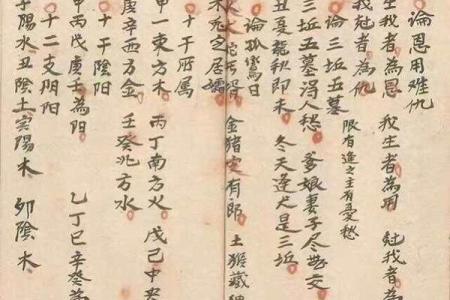 論恩用难仇
生我者為恩 我生者為用 尅我者為
我尅者為仇
限有逢之主有憂愁
論三坵五墓
三坵五墓得人愁 爹娘妻子尽世交
丑夏龍秋即未 冬天逢犬是三坵
論孤鸞日
金猪定有郎 土猴藏
之居孀
十干所属
甲一東方木 丙丁南方火 戊己中央
庚辛西方金 壬癸北方水
十干陰陽
甲丙戊庚壬為陽 乙丁巳辛癸為
十二支陰陽
子陽水丑陰土寅陽木 卯陰木